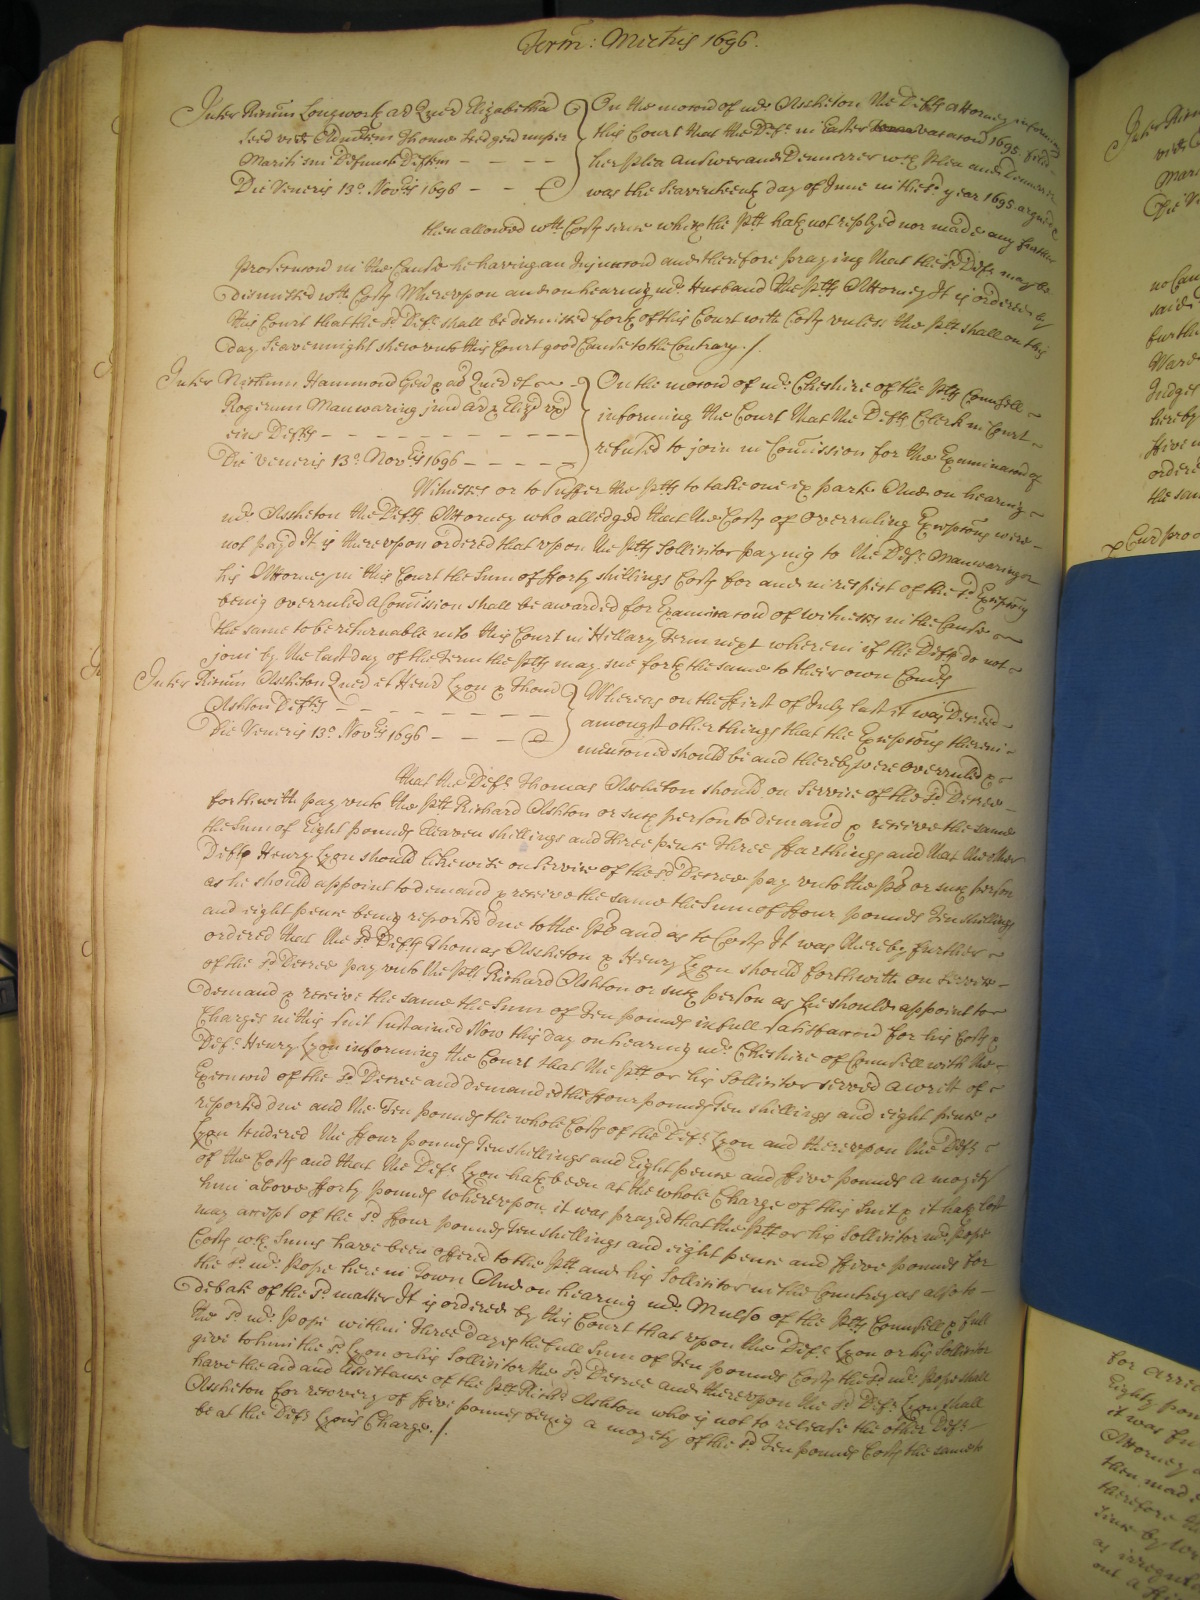 Term: Michis 1696.
Inter Ricum Longworth ad Quer Elizabetha
Seed vid Thome Seed nuper
Mariti sui Defunct Deften
Die Veneris 13o. Novris 1696
On the mocon of mr. Assheton the Defts Attorney informing
this Court that the Deft. in Easter vacacon 1695 filed
her Plea Answer and Demurrer wch Plea and Demurrer
was the Seaventeenth day of June in the sd. year 1695 argued &
then allowed wth. Costs since which the Plt hath not replyed nor made any further
prosecucon in the Cause he having an Injuncon and therefore praying that the sd Deft. may be
dismissed wth Costs Whereupon and on hearing mr. Husband the Plts Attorney It is ordered by
this Court that the sd Deft. shall be dismissed forth of this Court with Costs unless the Plt shall on this
day Seavennight shew unto this Court good Cause to the Contrary./.
Inter Hammond Gen & al Quer et
Rogerum Manwaring jun ar & Eliz ux
eius Defts
Die Veneris 13o. Novris 1696
On the mocon of mr. Cheshire of the Plts Counsell
informing the Court that the Defts Clerk in Court
refused to join in Comission for the Examinacon of
Witnesses or to suffer the Plts to take one ex parte And on hearing
mr. Assheton the Defts Attorney who alledged that the Costs of overruling Excepcons were
not payd It is thereupon ordered that upon the Plts Sollicitor paying to the Deft. Manwaring or
his Attorney in this Court the Sum of fforty shillings Costs for and in respect of the sd Excepcons
being overruled a Comission shall be awarded for Examinacon of Witnesses in the Cause
the same to be returnable into this Court in Hillary Term next wherein if the Defts do not
join by the last day of the Term the Plts may sue forth the same to their own Comrs
Inter Ricum Assheton Quer et Henr Lyon & Thom
Ashton Defts
Die Veneris 13o. Novris 1696
Whereas on the ffirst of July last it was Decreed
amongst other things that the Excepcons therein
mencioned should be and thereby were overruled &
that the Deft. Thomas Assheton should on Service of the sd Decree
forthwith pay unto the Plt Richard Ashton or such person to demand & receive the same
the Sum of Eight pounds Eleaven shillings and three pence three ffarthings and that the other
Deft Henry Lyon should likewise on Service of the sd Decree pay unto the Plt or such person
as he should appoint to demand & receive the same the Sum of ffour pounds Ten shillings
and eight pence being reported due to the Plt and as to Costs It was thereby further
ordered that the sd Defts Thomas Assheton & Henry Lyon should forthwith on service
of the sd Decree pay unto the Plt Richard Ashton or such person as he should appoint to
demand & receive the same the Sum of Ten pounds in full satisfaccon for his Costs &
Charges in this suit sustained Now this Day on hearing mr. Cheshire of Counsell with the
Deft. Henry Lyon informing the Court that the Plt or his Sollicitor served a writt of
Execucon of the sd Decree and demanded the ffour pounds Ten shillings and eight pence
reported due and the Ten pounds the whole Costs of the Deft. Lyon and thereupon the Deft.
Lyon tendered the ffour pounds Ten shillings and Eight pence and ffive pounds a moyety
of the Costs and that the Deft. Lyon hath been at the whole Charge of this Suit & it hath cost
him above fforty pounds whereupon it was prayed that the Plt or his Sollicitor mr. Pope
may accept of the sd ffour pounds Ten shillings and eight pence and ffive pounds for
Costs, wch Sums have been offered to the Plt and his Sollicitor in the Country as also to
the sd mr. Pope here in Town And on hearing mr. Mulso of the Plts Counsell & full
debate of the sd matter It is ordered by this Court that upon the Deft. Lyon or his Sollicitor
the sd mr. Pope within three dayes the full Sum of Ten pounds Costs the sd mr. Pope shall
give to him the sd. Lyon or his Sollicitor the sd Decree and thereupon the sd Deft. Lyon shall
have the aid and Assistance of the Plt Richd Ashton who is not to release the other Deft.
Assheton for recovery of ffive pounds being a moyety of the sd Ten pounds Costs the same to
be at the Deft. Lyon's Charge./.